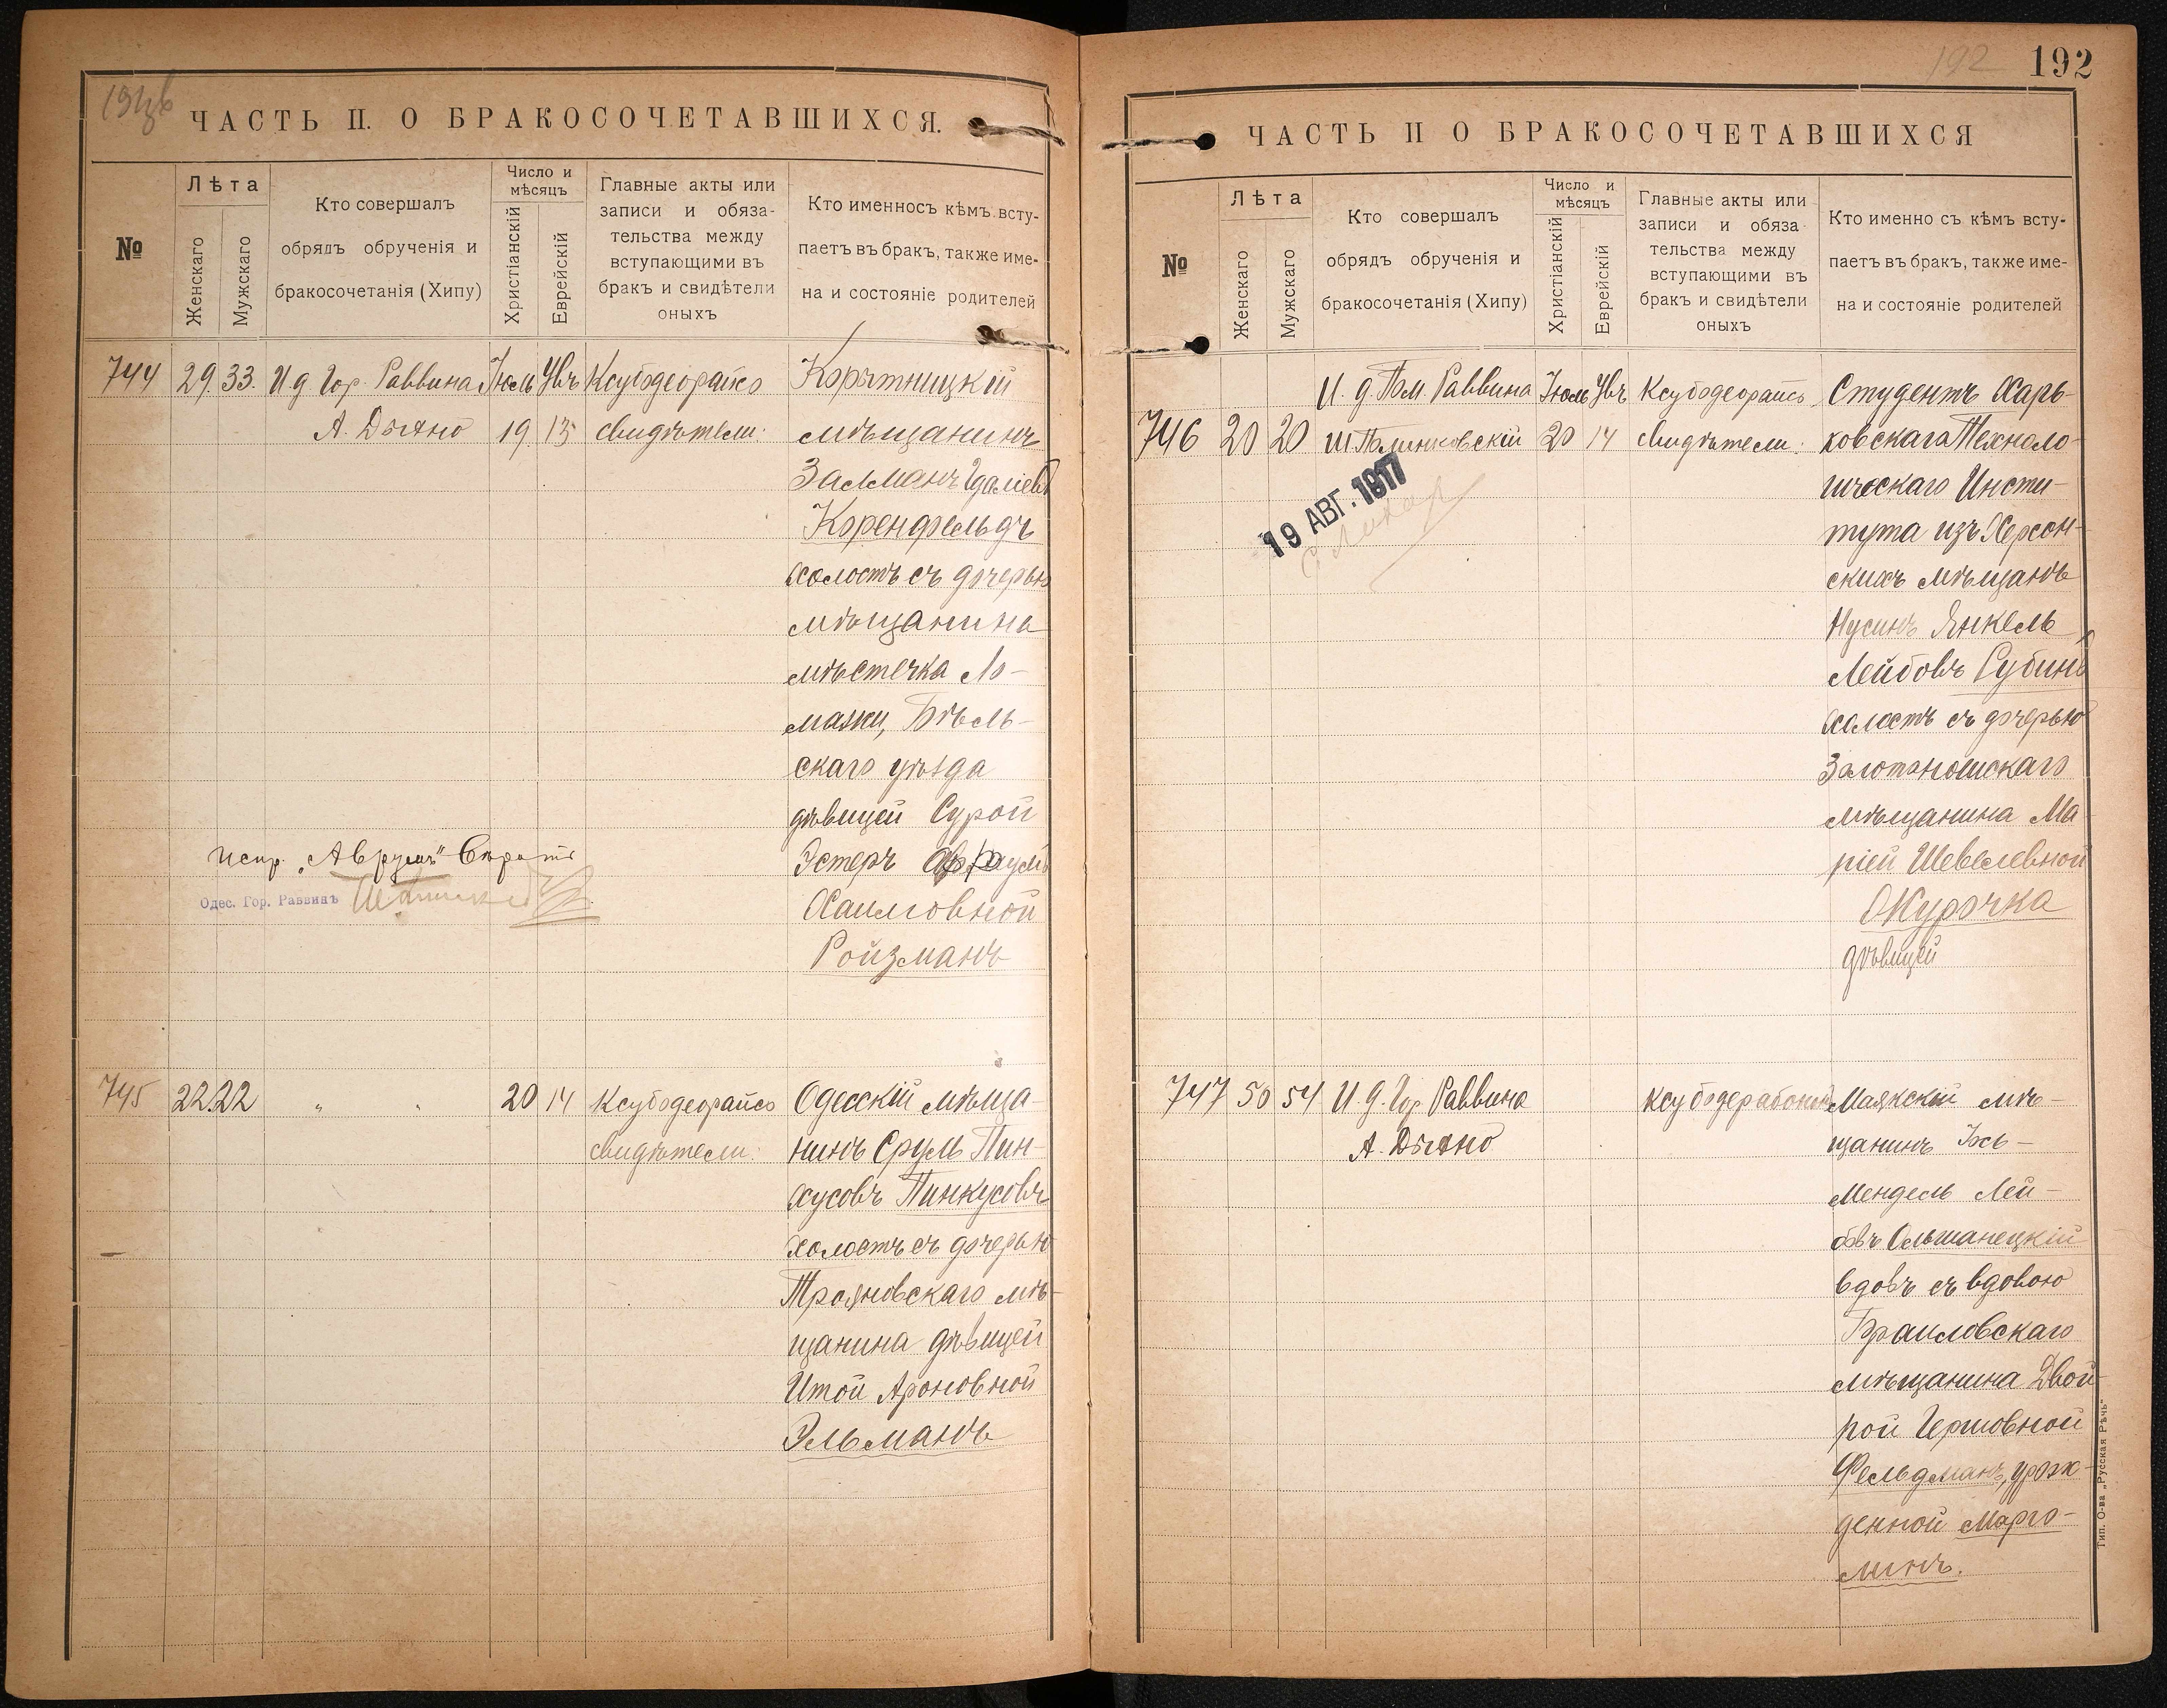 192
192
ЧАСТЬ II. О БРАКОСОЧЕТАВШИХСЯ.
№
Лѣта
Женскаго
Мужскаго
Кто совершалъ
обрядъ обрученія и
бракосочетанія (Хипу)
Число и
мѣсяцъ
Христіанскій
Еврейскій
Главные акты или
записи и обяза-
тельства между
вступающими въ
бракъ и свидѣтели
оныхъ
Кто именносъ кѣмъ всту-
паетъ въ бракъ, также име-
на и состояніе родителей
744 29. 33. И. д. Гор. Раввина Іюль Ксубодеорайсо
А. Дыхно 19 13 свидѣтели:
Корытницкій
мѣщанинъ
Залманъ Гдаліевъ
Коренфельдъ
холостъ съ дочерью
мѣщанина
мѣстечка Ло-
мазы, Бѣль-
скаго уѣзда
дѣвицей Сурой
Эстеръ
Хаимовной
Ройзманъ
испр. „Аврумъ“ Вѣрить
Одес. Гор. Раввинъ
745 22 22 " " 20 14 Ксубодеорайсо
свидѣтели:
Одесскій мѣща-
нинъ Сруль Пин-
хусовъ Пинкусовъ
холостъ съ дочерью
Трояновскаго мѣ-
щанина дѣвицей
Итой Ароновной
Эльманъ
ЧАСТЬ II О БРАКОСОЧЕТАВШИХСЯ
№
Лѣта
Женскаго
Мужскаго
Кто совершалъ
обрядъ обрученія и
бракосочетанія (Хипу)
Число и
мѣсяцъ
Христіанскій
Еврейскій
Главные акты или
записи и обяза-
тельства между
вступающими въ
бракъ и свидѣтели
оныхъ
Кто именно съ кѣмъ всту-
паетъ въ бракъ, также име-
на и состояніе родителей
И. д. Пом. Раввина Іюль Ксубодеорайсо
746 20 20 20 14 свидѣтели:
19 АВГ. 1917
Студентъ Харь-
ковскаго Техноло-
гическаго Инсти-
тута изъ Херсон-
скихъ мѣщанъ
Нусинъ Янкель
Лейбовъ Рубинъ
холостъ съ дочерью
Золотоношскаго
мѣщанина Ма-
ріей Шевелевной
Журочка
дѣвицей
747 50 54 И. д. Гор. Раввина
А. Дыхно
Маякскій мѣ-
щанинъ
Мендель Лей-
бовъ Ольшанецкій
вдовъ съ вдовою
Браиловскаго
мѣщанина Двой-
рой Гершовной
Фельдманъ, урож-
денной Марго-
линъ.
Тип. О-ва „Русская Рѣчь“